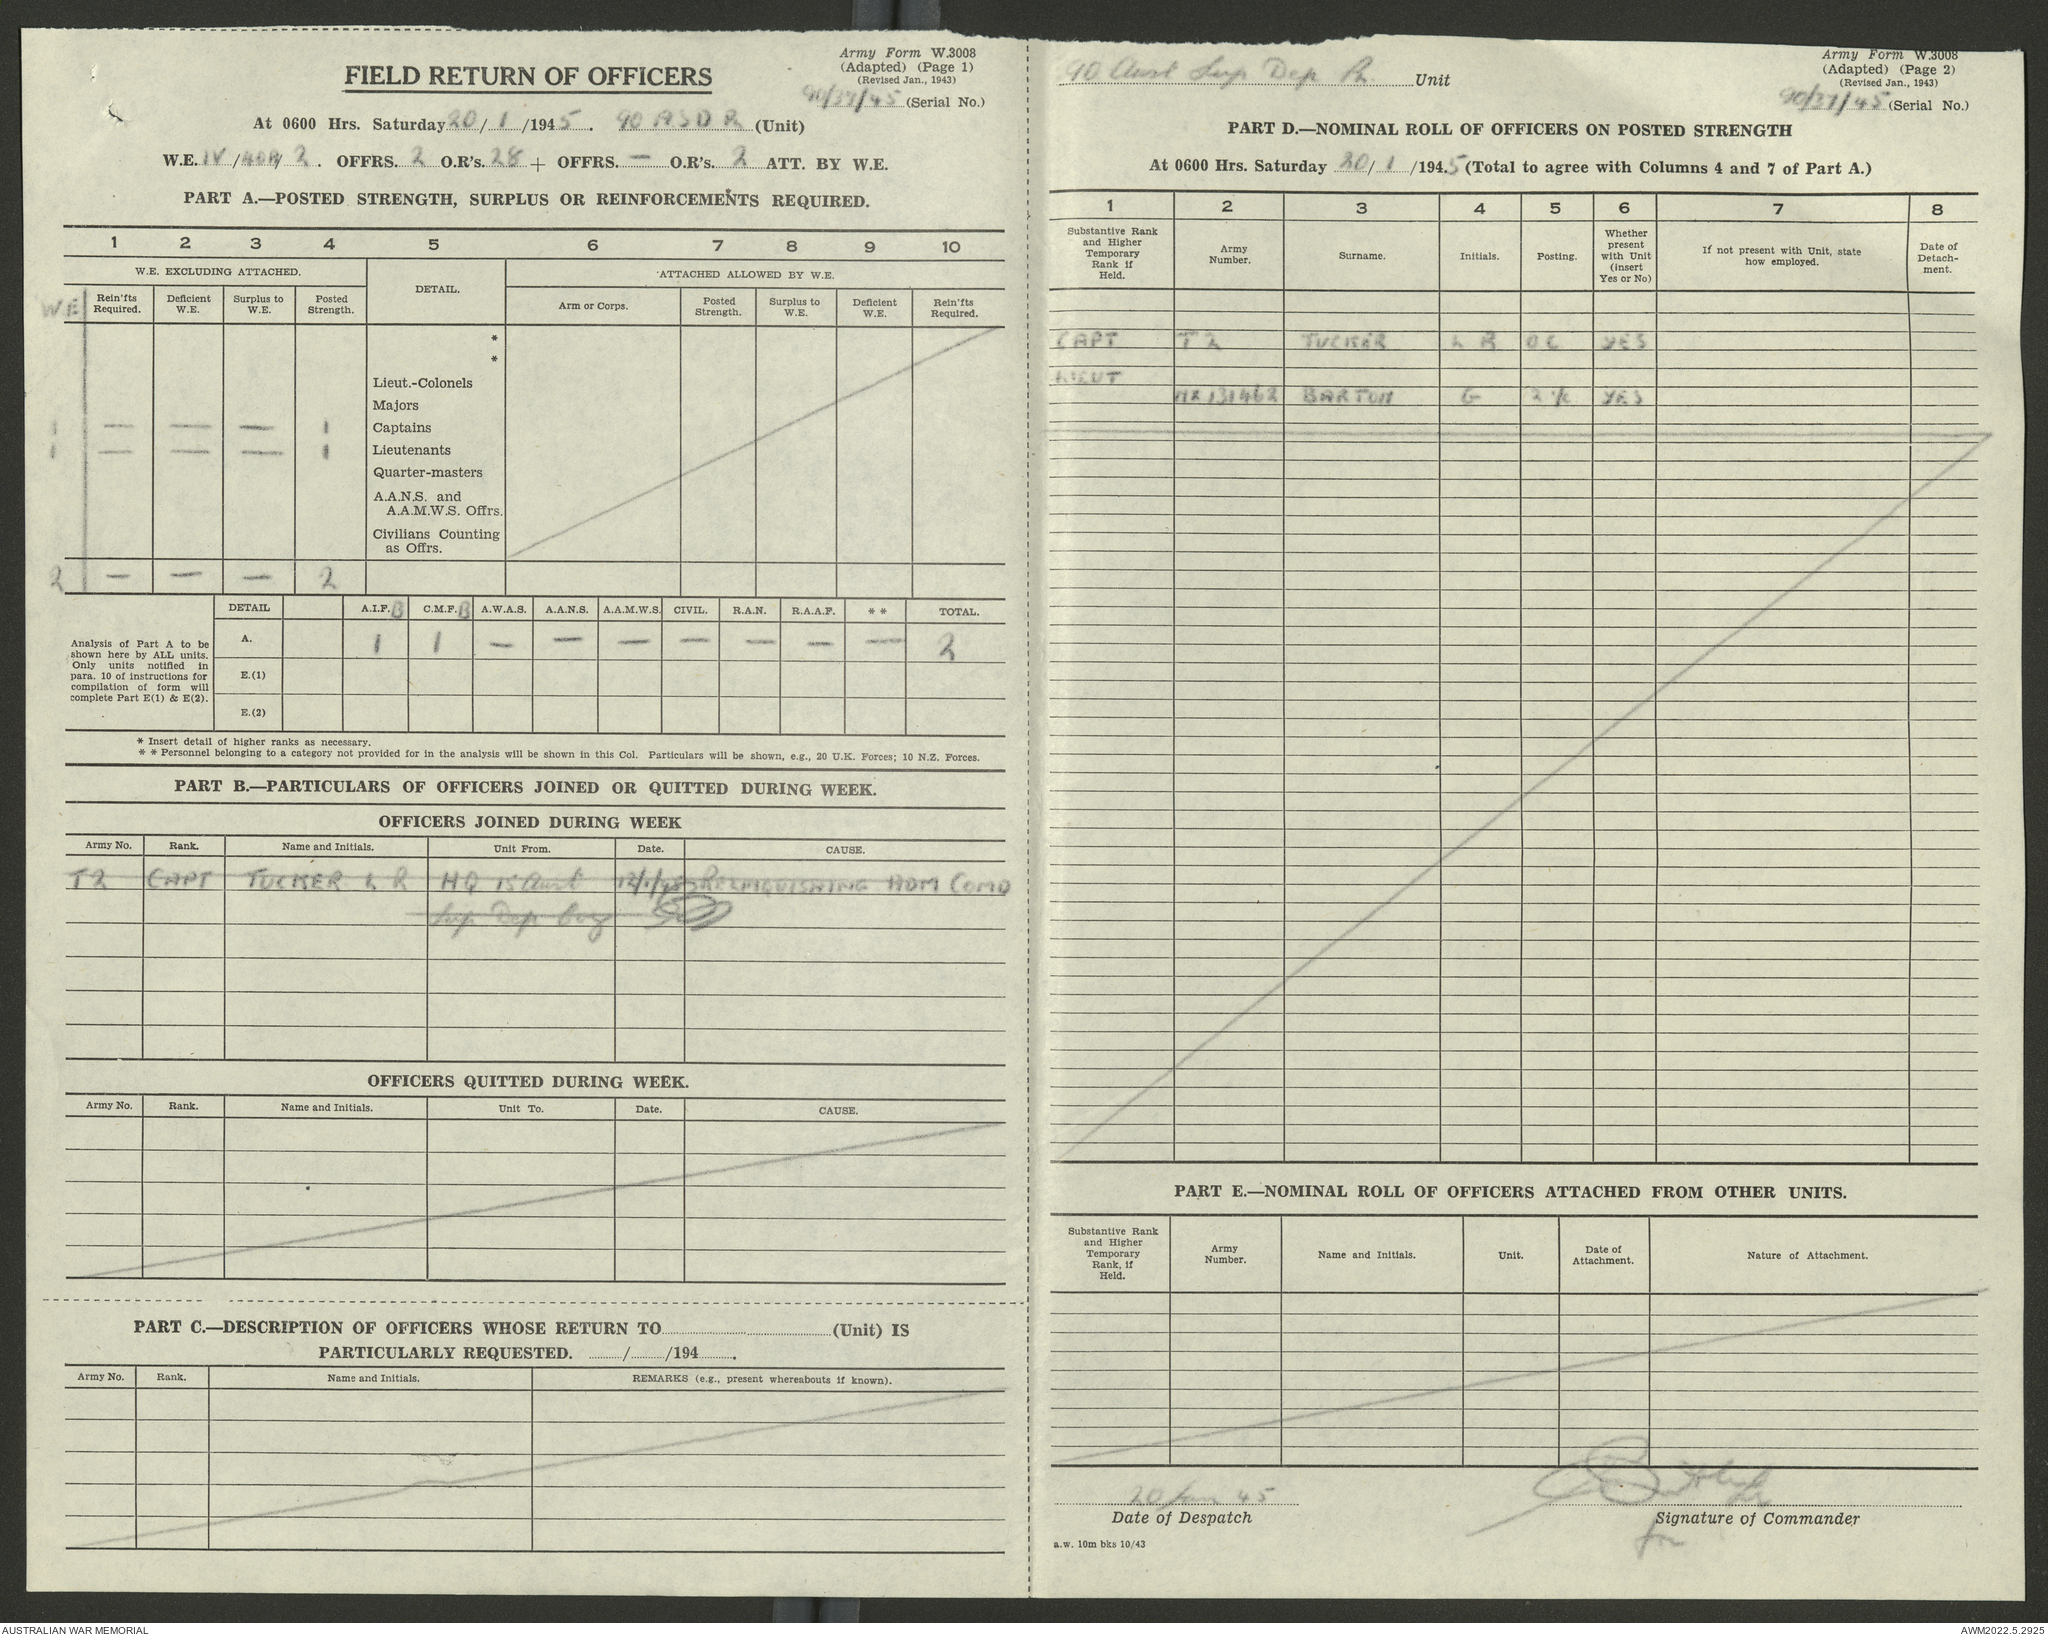 Army Form W.3008
(Adapted) (Page 1)
(Revised Jan., 1943)
FIELD RETURN OF OFFICERS
90/37/45 (Serial No.)
At 0600 Hrs. Saturday 20/1/1945. 90 ASD R (Unit)
W.E. IV/40R/2. OFFRS. 2 O.R's. 28 + OFFRS. — O.R's. 2 ATT. BY W.E.
PART A.—POSTED STRENGTH, SURPLUS OR REINFORCEMENTS REQUIRED.
1 2 3 4 5 6 7 8 9 10
W.E. EXCLUDING ATTACHED. DETAIL. ATTACHED ALLOWED BY W.E.
W.E. Rein'fts Required. Deficient W.E. Surplus to W.E. Posted Strength. Arm or Corps. Posted Strength. Surplus to W.E. Deficient W.E. Rein'fts Required.
*
*
Lieut.-Colonels
Majors
1 — — — 1 Captains
1 — — — 1 Lieutenants
Quarter-masters
A.A.N.S. and
A.A.M.W.S. Offrs.
Civilians Counting
as Offrs.
2 — — — 2
DETAIL A.I.F. B C.M.F. B A.W.A.S. A.A.N.S. A.A.M.W.S. CIVIL. R.A.N. R.A.A.F. * * TOTAL.
Analysis of Part A to be
shown here by ALL units.
Only units notified in
para. 10 of instructions for
compilation of form will
complete Part E(1) & E(2).
A. 1 1 — — — — — — — 2
E.(1)
E.(2)
* Insert detail of higher ranks as necessary.
* * Personnel belonging to a category not provided for in the analysis will be shown in this Col. Particulars will be shown, e.g., 20 U.K. Forces; 10 N.Z. Forces.
PART B.—PARTICULARS OF OFFICERS JOINED OR QUITTED DURING WEEK.
OFFICERS JOINED DURING WEEK
Army No. Rank. Name and Initials. Unit From. Date. CAUSE.
T2 CAPT TUCKER L R HQ 15 Aust 12/1/45 RELINQUISHING ADM COMD
Sup Dep Coy
OFFICERS QUITTED DURING WEEK.
Army No. Rank. Name and Initials. Unit To. Date. CAUSE.
PART C.—DESCRIPTION OF OFFICERS WHOSE RETURN TO (Unit) IS
PARTICULARLY REQUESTED. / /194 .
Army No. Rank. Name and Initials. REMARKS (e.g., present whereabouts if known).
Army Form W.3008
(Adapted) (Page 2)
(Revised Jan., 1943)
90 Aust Sup Dep Pl. Unit
90/37/45 (Serial No.)
PART D.—NOMINAL ROLL OF OFFICERS ON POSTED STRENGTH
At 0600 Hrs. Saturday 20/1/1945 (Total to agree with Columns 4 and 7 of Part A.)
1 2 3 4 5 6 7 8
Substantive Rank and Higher Temporary Rank if Held. Army Number. Surname. Initials. Posting. Whether present with Unit (insert Yes or No) If not present with Unit, state how employed. Date of Detach-ment.
CAPT T2 TUCKER L R OC YES
LIEUT
NX131462 BARTON G 2 i/c YES
PART E.—NOMINAL ROLL OF OFFICERS ATTACHED FROM OTHER UNITS.
Substantive Rank and Higher Temporary Rank, if Held. Army Number. Name and Initials. Unit. Date of Attachment. Nature of Attachment.
20 Jan 45
Date of Despatch
Signature of Commander
for
a.w. 10m bks 10/43
AUSTRALIAN WAR MEMORIAL
AWM2022.5.2925